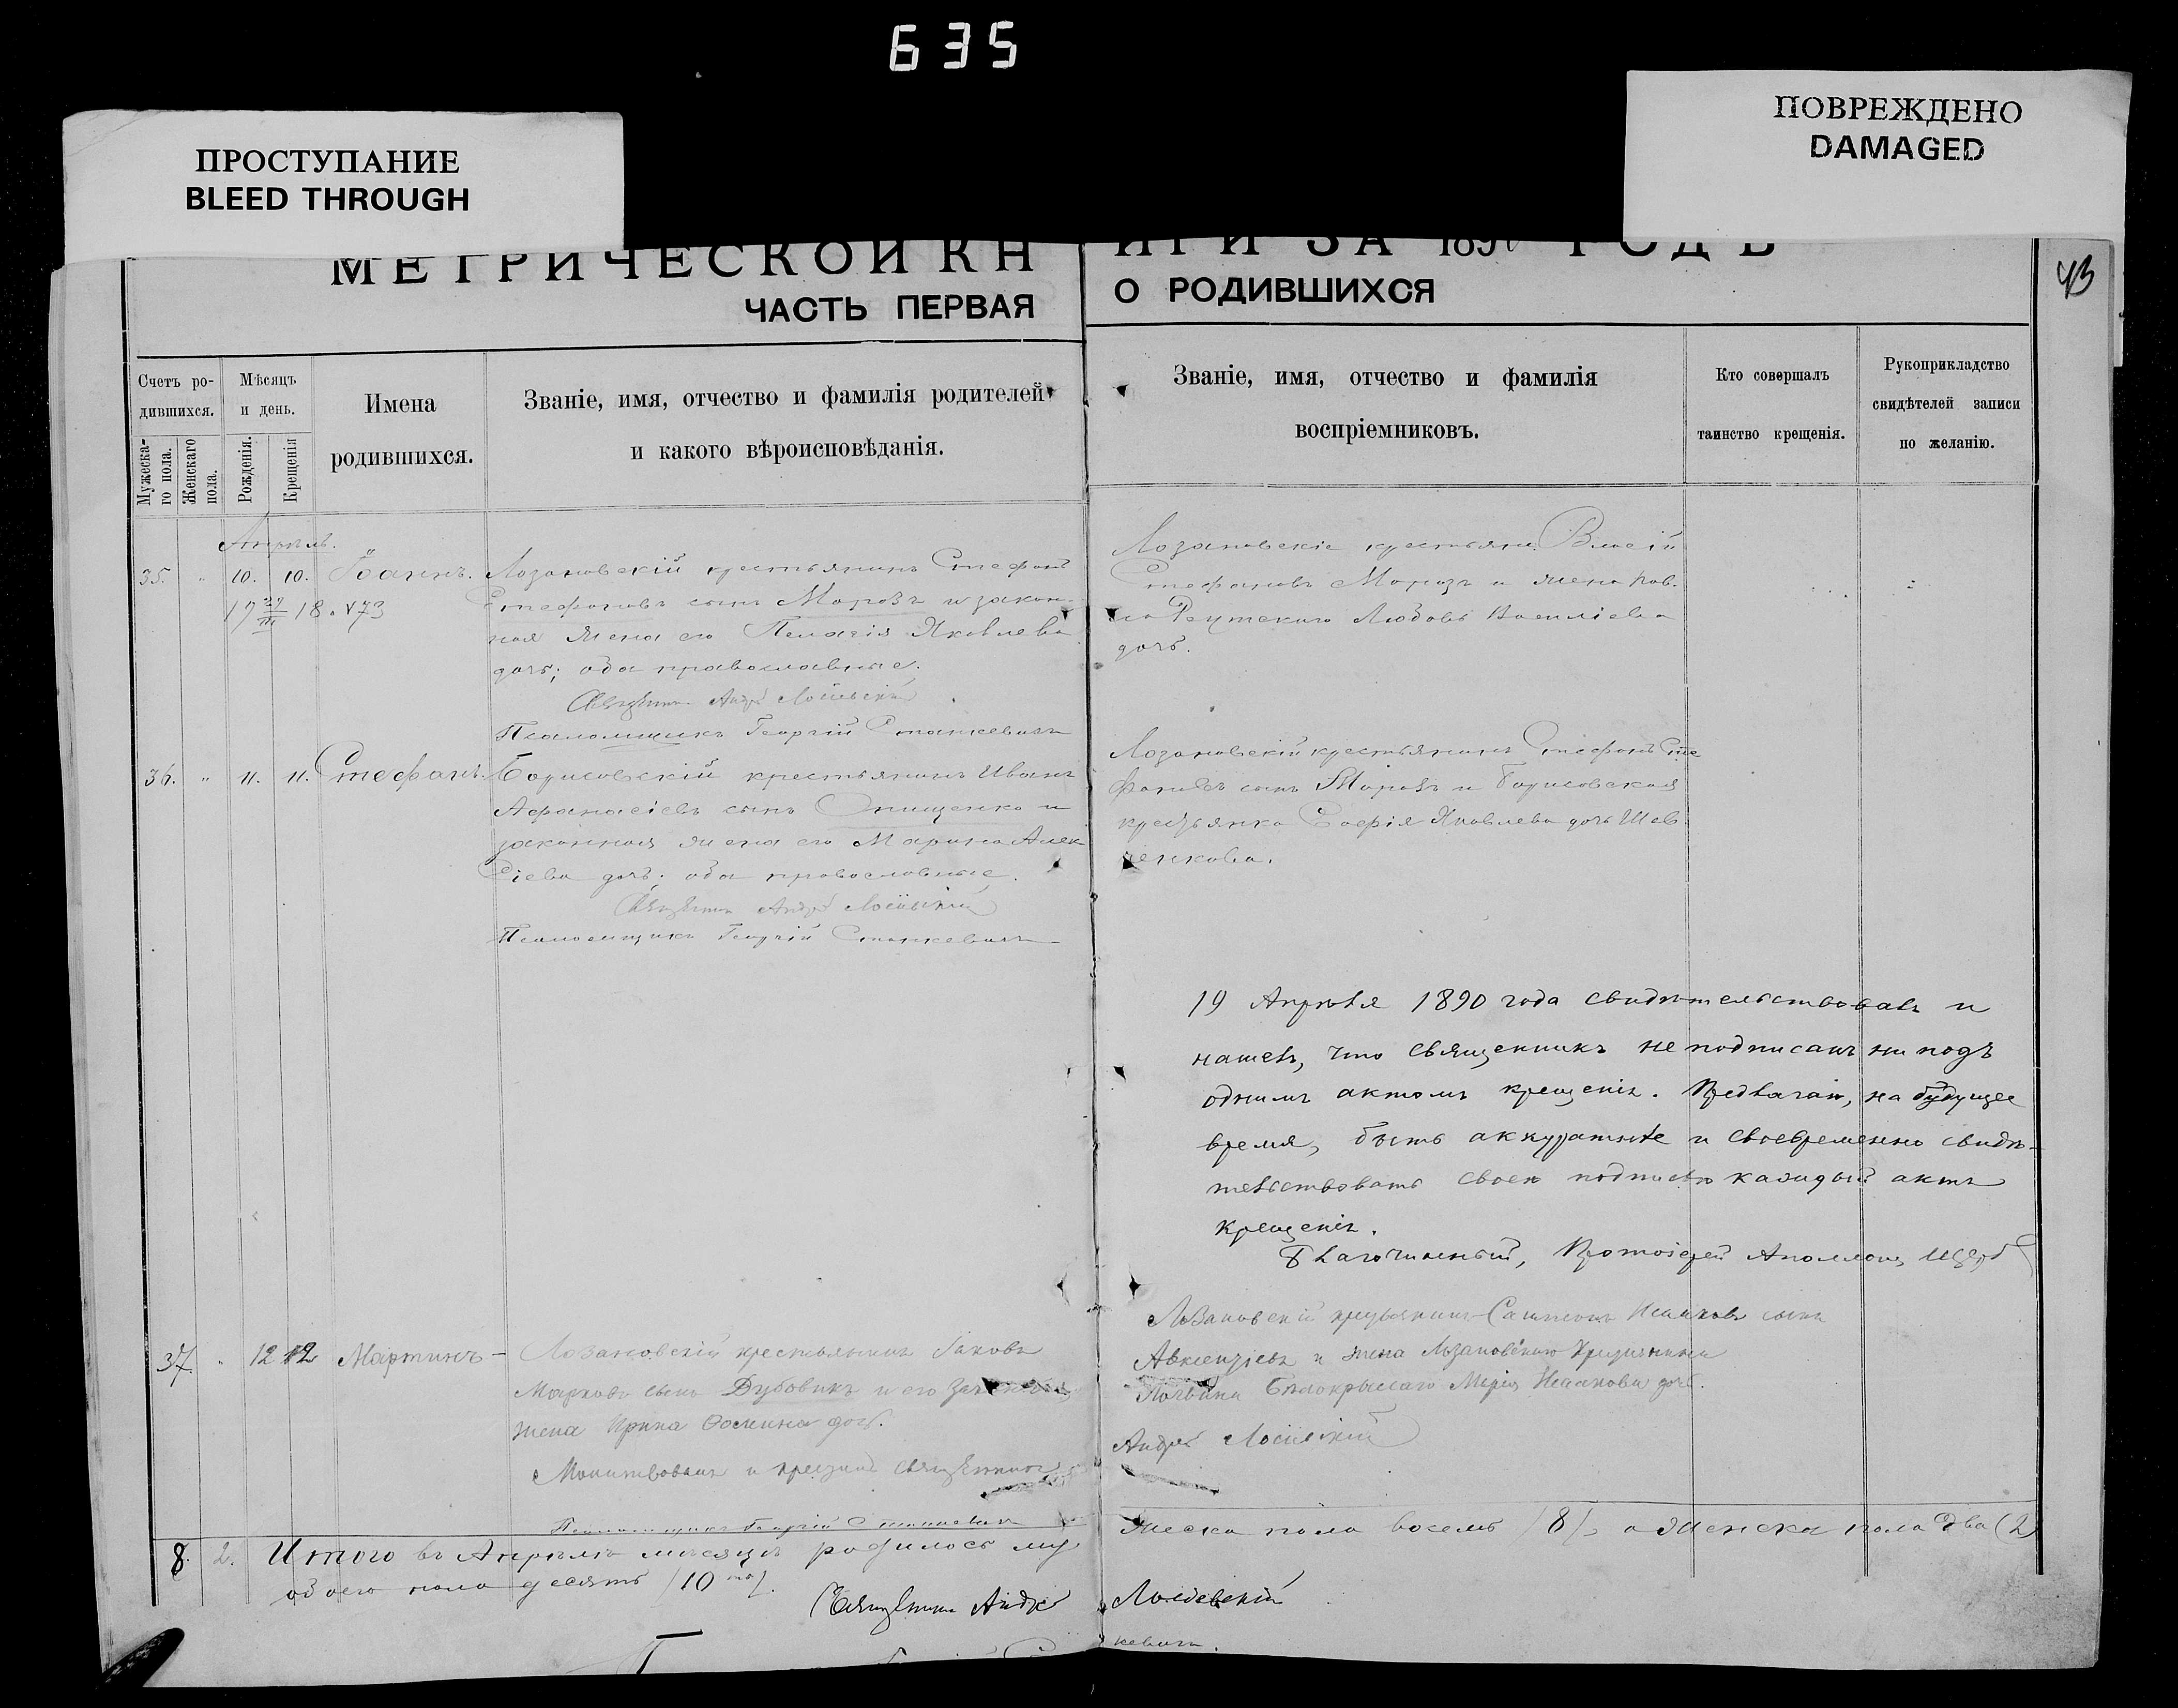 635
ПРОСТУПАНИЕ
BLEED THROUGH
ПОВРЕЖДЕНО
DAMAGED
МЕТРИЧЕСКОЙ КНИГИ ЗА 1890 ГОДЪ
43
ЧАСТЬ ПЕРВАЯ О РОДИВШИХСЯ
Счетъ ро-
дившихся.
Мужеска-
го пола.
Женскаго
пола.
Мѣсяцъ
и день.
Рожденія.
Крещенія
Имена
родившихся.
Званіе, имя, отчество и фамилія родителей
и какого вѣроисповѣданія.
Званіе, имя, отчество и фамилія
воспріемниковъ.
Кто совершалъ
таинство крещенія.
Рукоприкладство
свидѣтелей записи
по желанію.
Апрѣль.
35. " 10. 10. Іоаннъ.
Лозановскій крестьянинъ Стефанъ
Стефановъ сынъ Морозъ и закон-
ная жена его Пелагія Яковлева
дочь; оба православные.
Священникъ Андрей
Псаломщикъ Георгій Станкевичъ
Лозановскіе крестьяне Власій
Стефановъ Морозъ и жена Пав.
Любовь Василіева
дочь.
36. " 11. 11. Стефанъ.
Борисовскій крестьянинъ Иванъ
Афанасіевъ сынъ Онищенко и
законная жена его Марина Алек
сіева дочь; оба православные.
Священникъ Андрей
Псаломщикъ Георгій Станкевичъ
Лозановскій крестьянинъ Стефанъ Сте
фановъ сынъ Морозъ и Борисовская
крестьянка Софія Яковлева дочь Шев
ченкова.
19 Апрѣля 1890 года свидѣтельствовалъ и
нашелъ, что священникъ не подписанъ ни подъ
однимъ актомъ крещенія. Предлагаю, на будущее
время, быть аккуратнѣе и своевременно свидѣ-
тельствовать своею подписью каждый актъ
крещенія.
Благочинный, Протоіерей Аполлонъ
37. " 12 12 Мартинъ
Лозановскій крестьянинъ Іаковъ
Марковъ сынъ Дубовикъ и его законная
жена Ирина Ѳомина дочь.
Молитвовалъ и крестилъ Священникъ
Андрей
Псаломщикъ Георгій Станкевичъ
Лозановскій крестьянинъ Исааковъ сынъ
Авксентіевъ и жена Лозановскаго крестьянина
Марія Исаакова дочь.
8. 2. Итого въ Апрѣлѣ мѣсяцѣ родилось му
жеска пола восемь /8/, а женска пола два (2)
обоего пола десять /10/.
Священникъ Андрей
кевичъ.